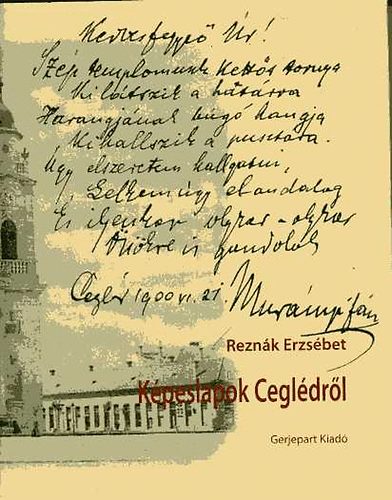 Kedves fegyző Úr!
Szép templomunk kettős tornya
Ki látszik a határra
Harangjának búgó hangja
Ki hallszik a pusztára.
Úgy elszeretem hallgatni,
Lelkem úgy el andalog
És ilyenkor olykor-olykor
Önökre is gondolok
Cegléd 1900 VI. 21 Murányi
Reznák Erzsébet
Képeslapok Ceglédről
Gerjepart Kiadó